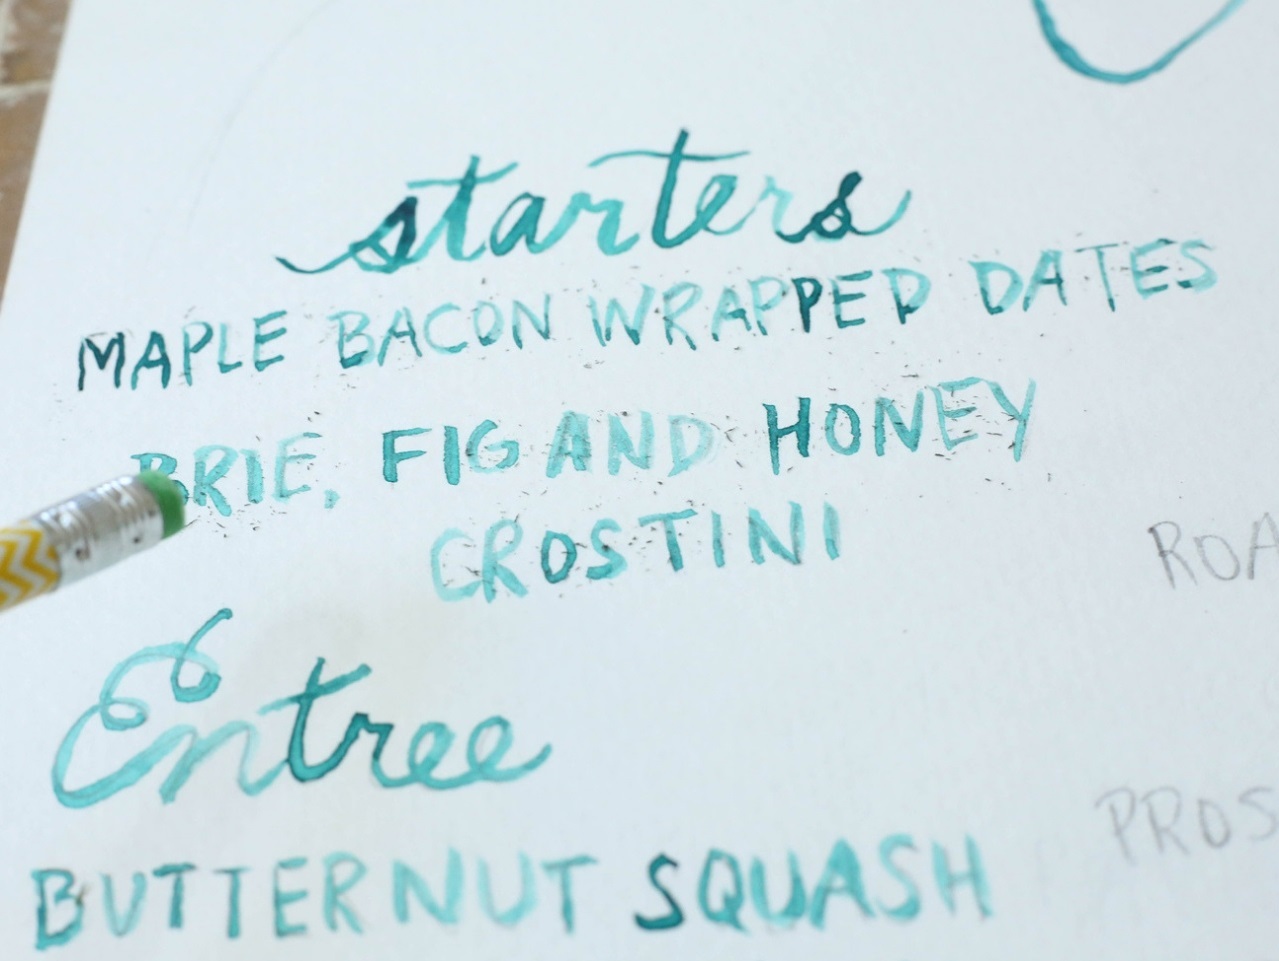 starters
MAPLE BACON WRAPPED DATES
BRIE, FIG AND HONEY
CROSTINI
ROA
Entree
PROS
BUTTERNUT SQUASH